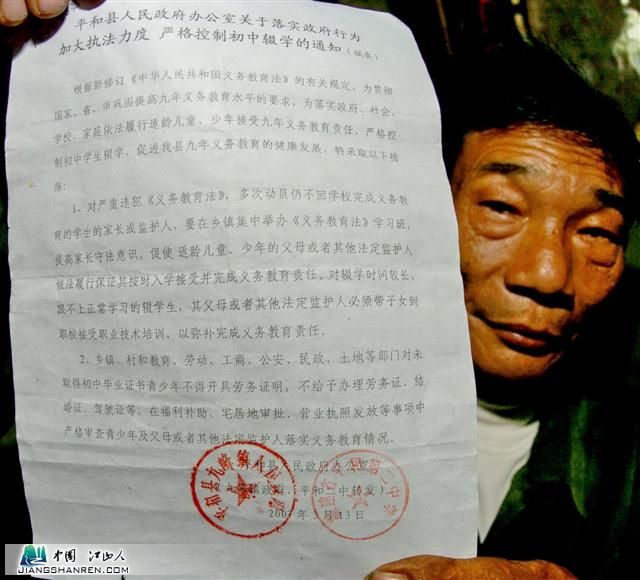 平和县人民政府办公室关于落实政府行为
加大执法力度 严格控制初中辍学的通知(摘要)
根据新修订《中华人民共和国义务教育法》的有关规定,为贯彻
国家、省、市巩固提高九年义务教育水平的要求,为落实政府、社会、
学校、家庭依法履行适龄儿童、少年接受九年义务教育责任,严格控
制初中学生辍学,促进我县九年义务教育的健康发展,特采取以下措
施:
1、对严重违犯《义务教育法》,多次动员仍不回学校完成义务教
育的学生的家长或监护人,要在乡镇集中举办《义务教育法》学习班,
提高家长守法意识,促使 适龄儿童、少年的父母或者其他法定监护人
依法履行保证其按时入学接受并完成义务教育责任。对辍学时间较长,
跟不上正常学习的辍学生,其父母或者其他法定监护人必须带子女到
职校接受职业技术培训,以弥补完成义务教育责任。
2、乡镇、村和教育、劳动、工商、公安、民政、土地等部门对未
取得初中毕业证书青少年不得开具劳务证明,不给予办理劳务证、结
婚证、驾驶证等,在福利补助、宅居地审批、营业执照发放等事项中
严格审查青少年及父母或者其他法定监护人落实义务教育情况。
平和县人民政府办公室
九峰镇政府、(平和二中转发)
2007年3月13日
平和县九峰镇人民政府
中国 江山人
JIANGSHANREN.COM